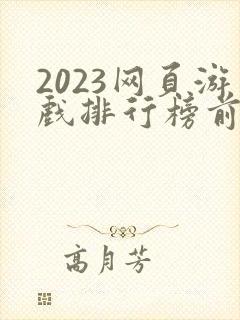 2023网页游
戏排行榜前
高月芳